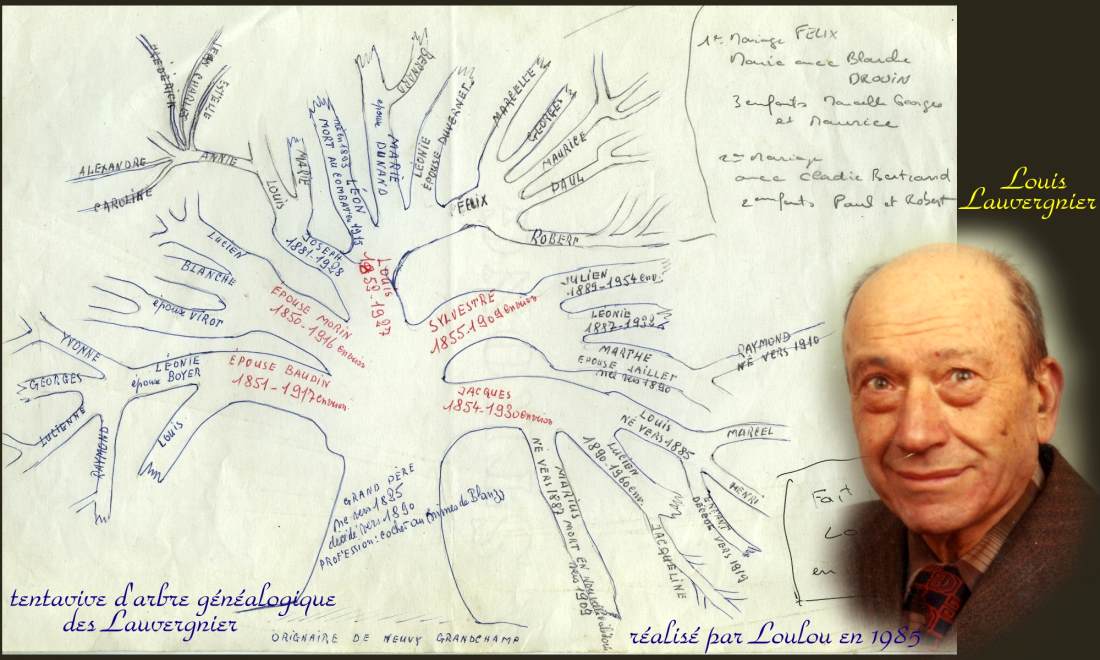 1er Mariage FELIX
Marie avec Blanche
DROUIN
3 enfants Marcelle Georges
et Maurice
2me Mariage
avec Clodie Bertrand
2 enfants Paul et Robert
Louis
Lauvergnier
FREDERICK
JEAN CHARLES
ESTELLE
ALEXANDRE
ANNIE
CAROLINE
LOUIS
MARIE
LÉON
né en 1893
MORT AU COMBAT EN 1915
JOSEPH
1881-1928
MARIE
épouse
DUNAND
BERNARD
LEONIE
ÉPOUSE DUVERNET
FELIX
MARCELLE
GEORGES
MAURICE
PAUL
ROBERT
LUCIEN
BLANCHE
épouse VIROT
EPOUSE MORIN
1850-1916 environ
LOUIS
1850-1927
SYLVESTRE
1855-1909 environ
JULIEN
1889-1954 env.
LEONIE
MARTHE
EPOUSE JAILLET
née vers 1890
RAYMOND
NÉ VERS 1910
YVONNE
GEORGES
LUCIENNE
RAYMOND
LÉONIE
épouse BOYER
LOUIS
ÉPOUSE BAUDIN
1851-1917 environ
JACQUES
1854-1930 environ
LOUIS
NÉ VERS 1885
MARCEL
HENRI
ENFANT
DECEDE VERS 1919
LUCIEN
1890-1960 env.
JACQUELINE
MARIUS MORT EN
vers 1909
NÉ VERS 1882
GRAND PÈRE
né vers 1825
décédé vers 1890
PROFESSION: cocher aux mines de Blanzy
Fait
en
tentavive d'arbre généalogique
des Lauvergnier
ORIGNAIRE DE NEUVY GRANDCHAMP
réalisé par Loulou en 1985